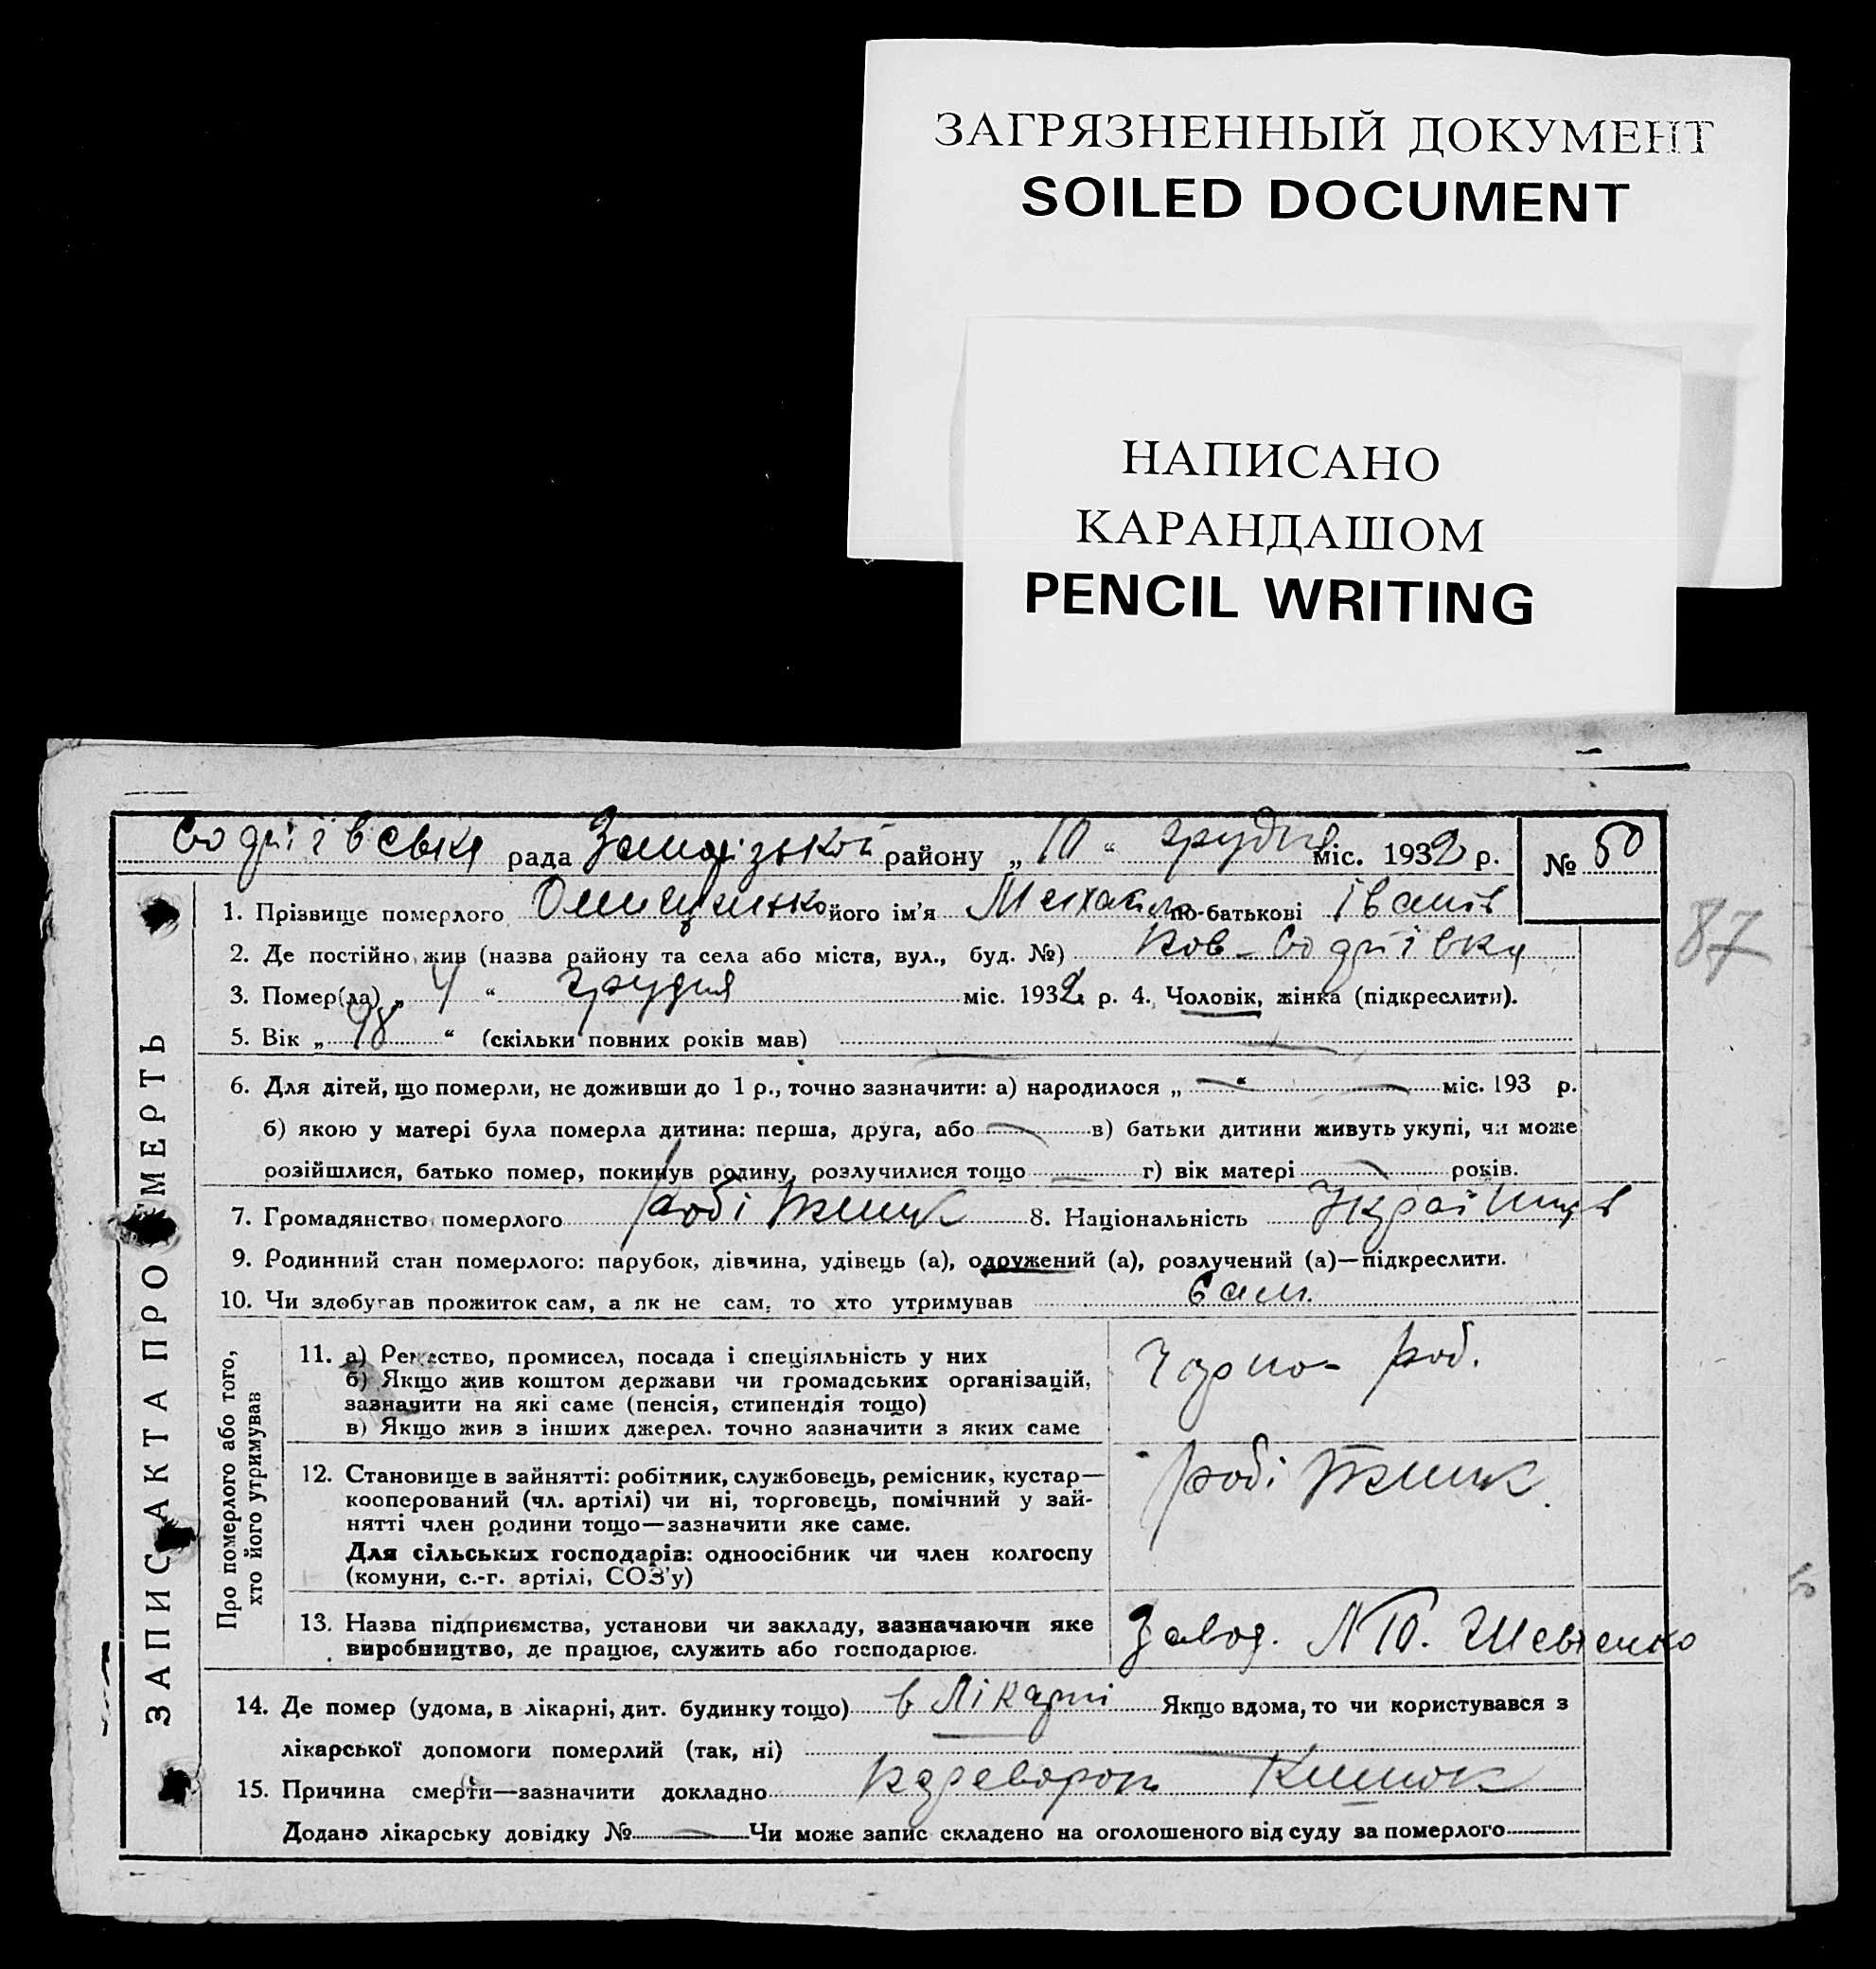 ЗАГРЯЗНЕННЫЙ ДОКУМЕНТ
SOILED DOCUMENT
НАПИСАНО
КАРАНДАШОМ
PENCIL WRITING
рада району „ 10 “ грудня міс. 1932 р. № 50
1. Прізвище померлого його ім'я по-батькові Іванів
87
2. Де постійно жив (назва району та села або міста, вул., буд. №)
3. Помер(ла) „ 4 “ грудня міс. 1932 р. 4. Чоловік, жінка (підкреслити).
5. Вік „ 48 “ (скільки повних років мав)
6. Для дітей, що померли, не доживши до 1 р., точно зазначити: а) народилося „ “ міс. 193 р.
б) якою у матері була померла дитина: перша, друга, або в) батьки дитини живуть укупі, чи може
розійшлися, батько помер, покинув родину, розлучилися тощо г) вік матері років.
7. Громадянство померлого робітник 8. Національність Українців
9. Родинний стан померлого: парубок, дівчина, удівець (а), одружений (а), розлучений (а)—підкреслити.
10. Чи здобував прожиток сам, а як не сам, то хто утримував сам.
11. а) Ремество, промисел, посада і спеціяльність у них
б) Якщо жив коштом держави чи громадських організацій,
зазначити на які саме (пенсія, стипендія тощо)
в) Якщо жив з інших джерел. точно зазначити з яких саме
Чорно-роб.
12. Становище в зайнятті: робітник, службовець, ремісник, кустар—
кооперований (чл. артілі) чи ні, торговець, помічний у зай-
нятті член родини тощо—зазначити яке саме.
Для сільських господарів: одноосібник чи член колгоспу
(комуни, с.-г. артілі, СОЗ'у)
робітник.
13. Назва підприємства, установи чи закладу, зазначаючи яке
виробництво, де працює, служить або господарює.
Завод. Шевченко
14. Де помер (удома, в лікарні, дит. будинку тощо) в лікарні Якщо вдома, то чи користувався з
лікарської допомоги померлий (так, ні)
15. Причина смерти—зазначити докладно Кишок
Додано лікарську довідку № Чи може запис складено на оголошеного від суду за померлого
ЗАПИС АКТА ПРО СМЕРТЬ
Про померлого або того,
хто його утримував